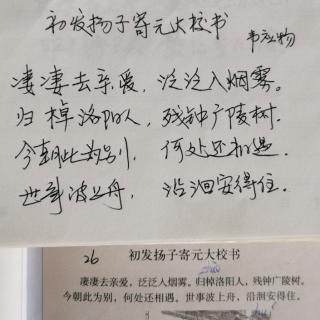 初发扬子寄元大校书
韦应物
凄凄去亲爱，泛泛入烟雾。
归棹洛阳人，残钟广陵树。
今朝此为别，何处还相遇。
世事波上舟，沿洄安得住。
26 初发扬子寄元大校书
凄凄去亲爱，泛泛入烟雾。归棹洛阳人，残钟广陵树。
今朝此为别，何处还相遇。世事波上舟，沿洄安得住。